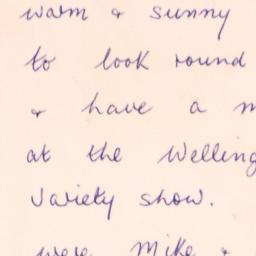 warm & sunny
to look round
& have a m
at the Welling
Variety show.
were Mike &